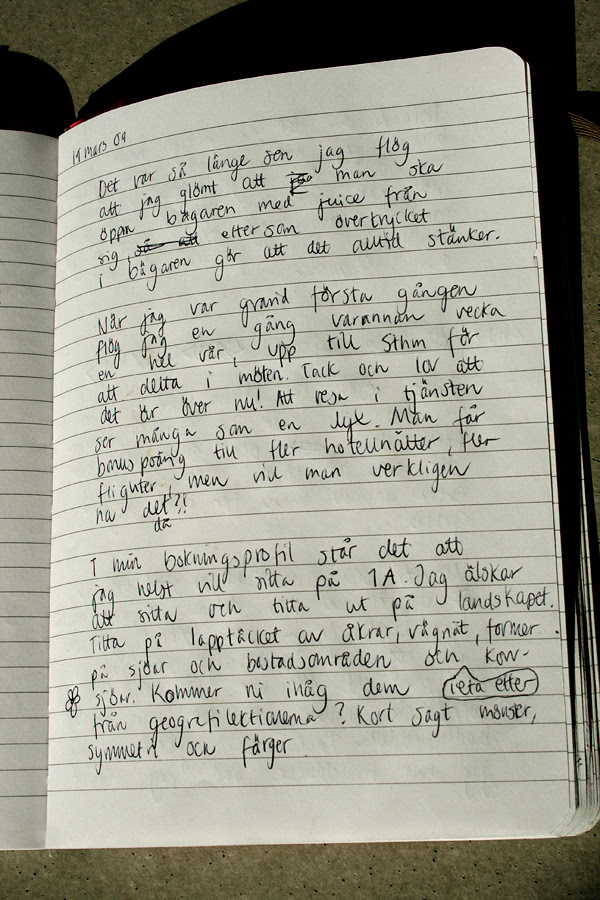 19 mars 09
Det var så länge sen jag flög
att jag glömt att man ska
öppna bägaren med juice från
sig, så att eftersom övertrycket
i bägaren gör att det alltid stänker.
När jag var gravid första gången
flög jag en gång varannan vecka
en hel vår, upp till Sthm för
att delta i möten. Tack och lov att
det är över nu! Att resa i tjänsten
ser många som en lyx. Man får
bonuspoäng till fler hotellnätter, fler
flighter, men vill man verkligen
ha det?!
då
I min bokningsprofil står det att
jag helst vill sitta på 1A. Jag älskar
att sitta och titta ut på landskapet.
Titta på lapptäcket av åkrar, vägnät, former
på sjöar och bostadsområden och kow-
sjöar. Kommer ni ihåg dem (leta efter)
från geografilektionerna? Kort sagt mönster,
symmetri och färger